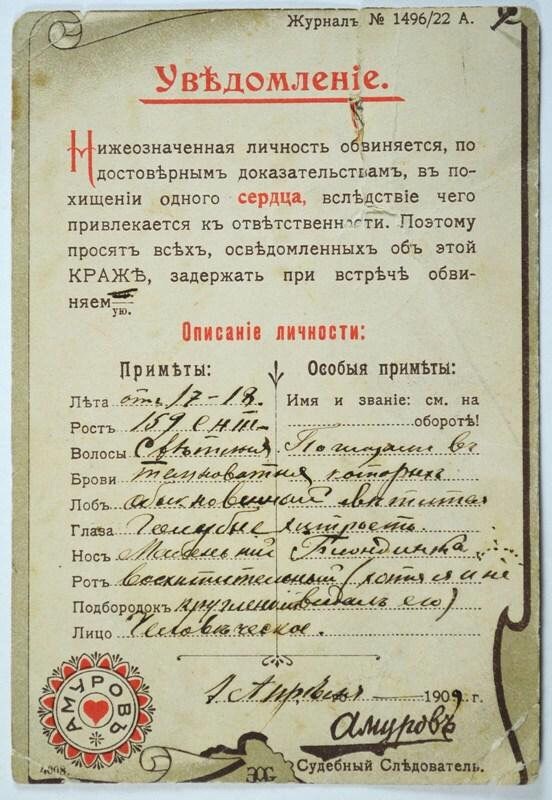 Журналъ № 1496/22 А.
Увѣдомленіе.
Нижеозначенная личность обвиняется, по
достовѣрнымъ доказательствамъ, въ по-
хищеніи одного сердца, вслѣдствіе чего
привлекается къ отвѣтственности. Поэтому
просятъ всѣхъ, освѣдомленныхъ объ этой
КРАЖѢ, задержать при встрѣчѣ обви-
няем
ую.
Описаніе личности:
Примѣты:
Лѣта отъ 17-18.
Ростъ 159 сент.
Волосы Свѣтлыя
Брови темноватыя
Лобъ обыкновенный
Глаза Голубые
Носъ Маленькій
Ротъ восхитительный (хотя я и не
Подбородокъ круглый видалъ его)
Лицо Человѣческое.
Особыя примѣты:
Имя и званіе: см. на
оборотѣ!
По глазами въ
которыхъ
хитрость.
Блондинка
1 Апрѣля 1909 г.
Амуровъ
Судебный Слѣдователь.
АМУРОВЪ
4008.